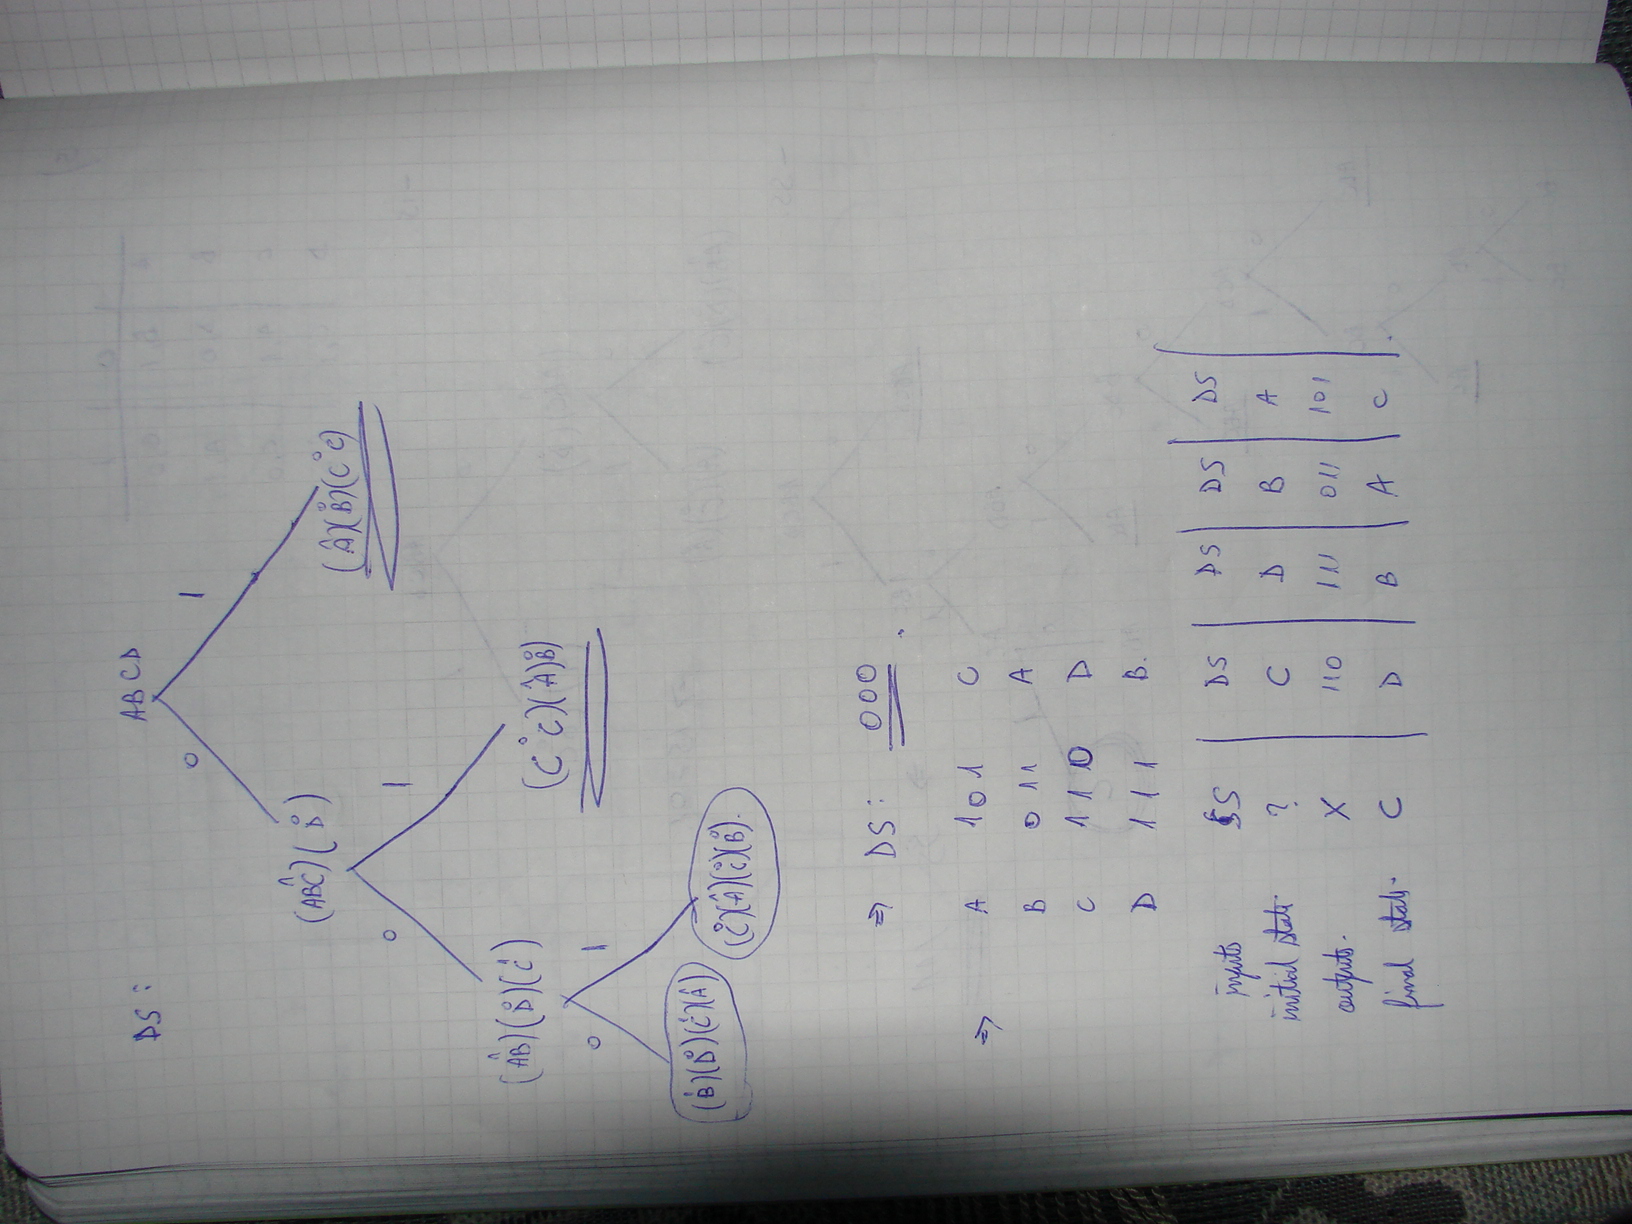 DS:
ABCD
0 1
(ABC)(D)
(A)(B)(CC)
0 1
(AB)(D)(C)
(CC)(A)(B)
0 1
(B)(D)(C)(A)
(C)(A)(C)(B).
⇒ DS: 000.
⇒ A 101 C
B 011 A
C 110 D
D 111 B.
inputs SS | DS | DS | DS | DS |
initial state ? | C | D | B | A
outputs. X | 110 | 111 | 011 | 101
final state. C | D | B | A | C